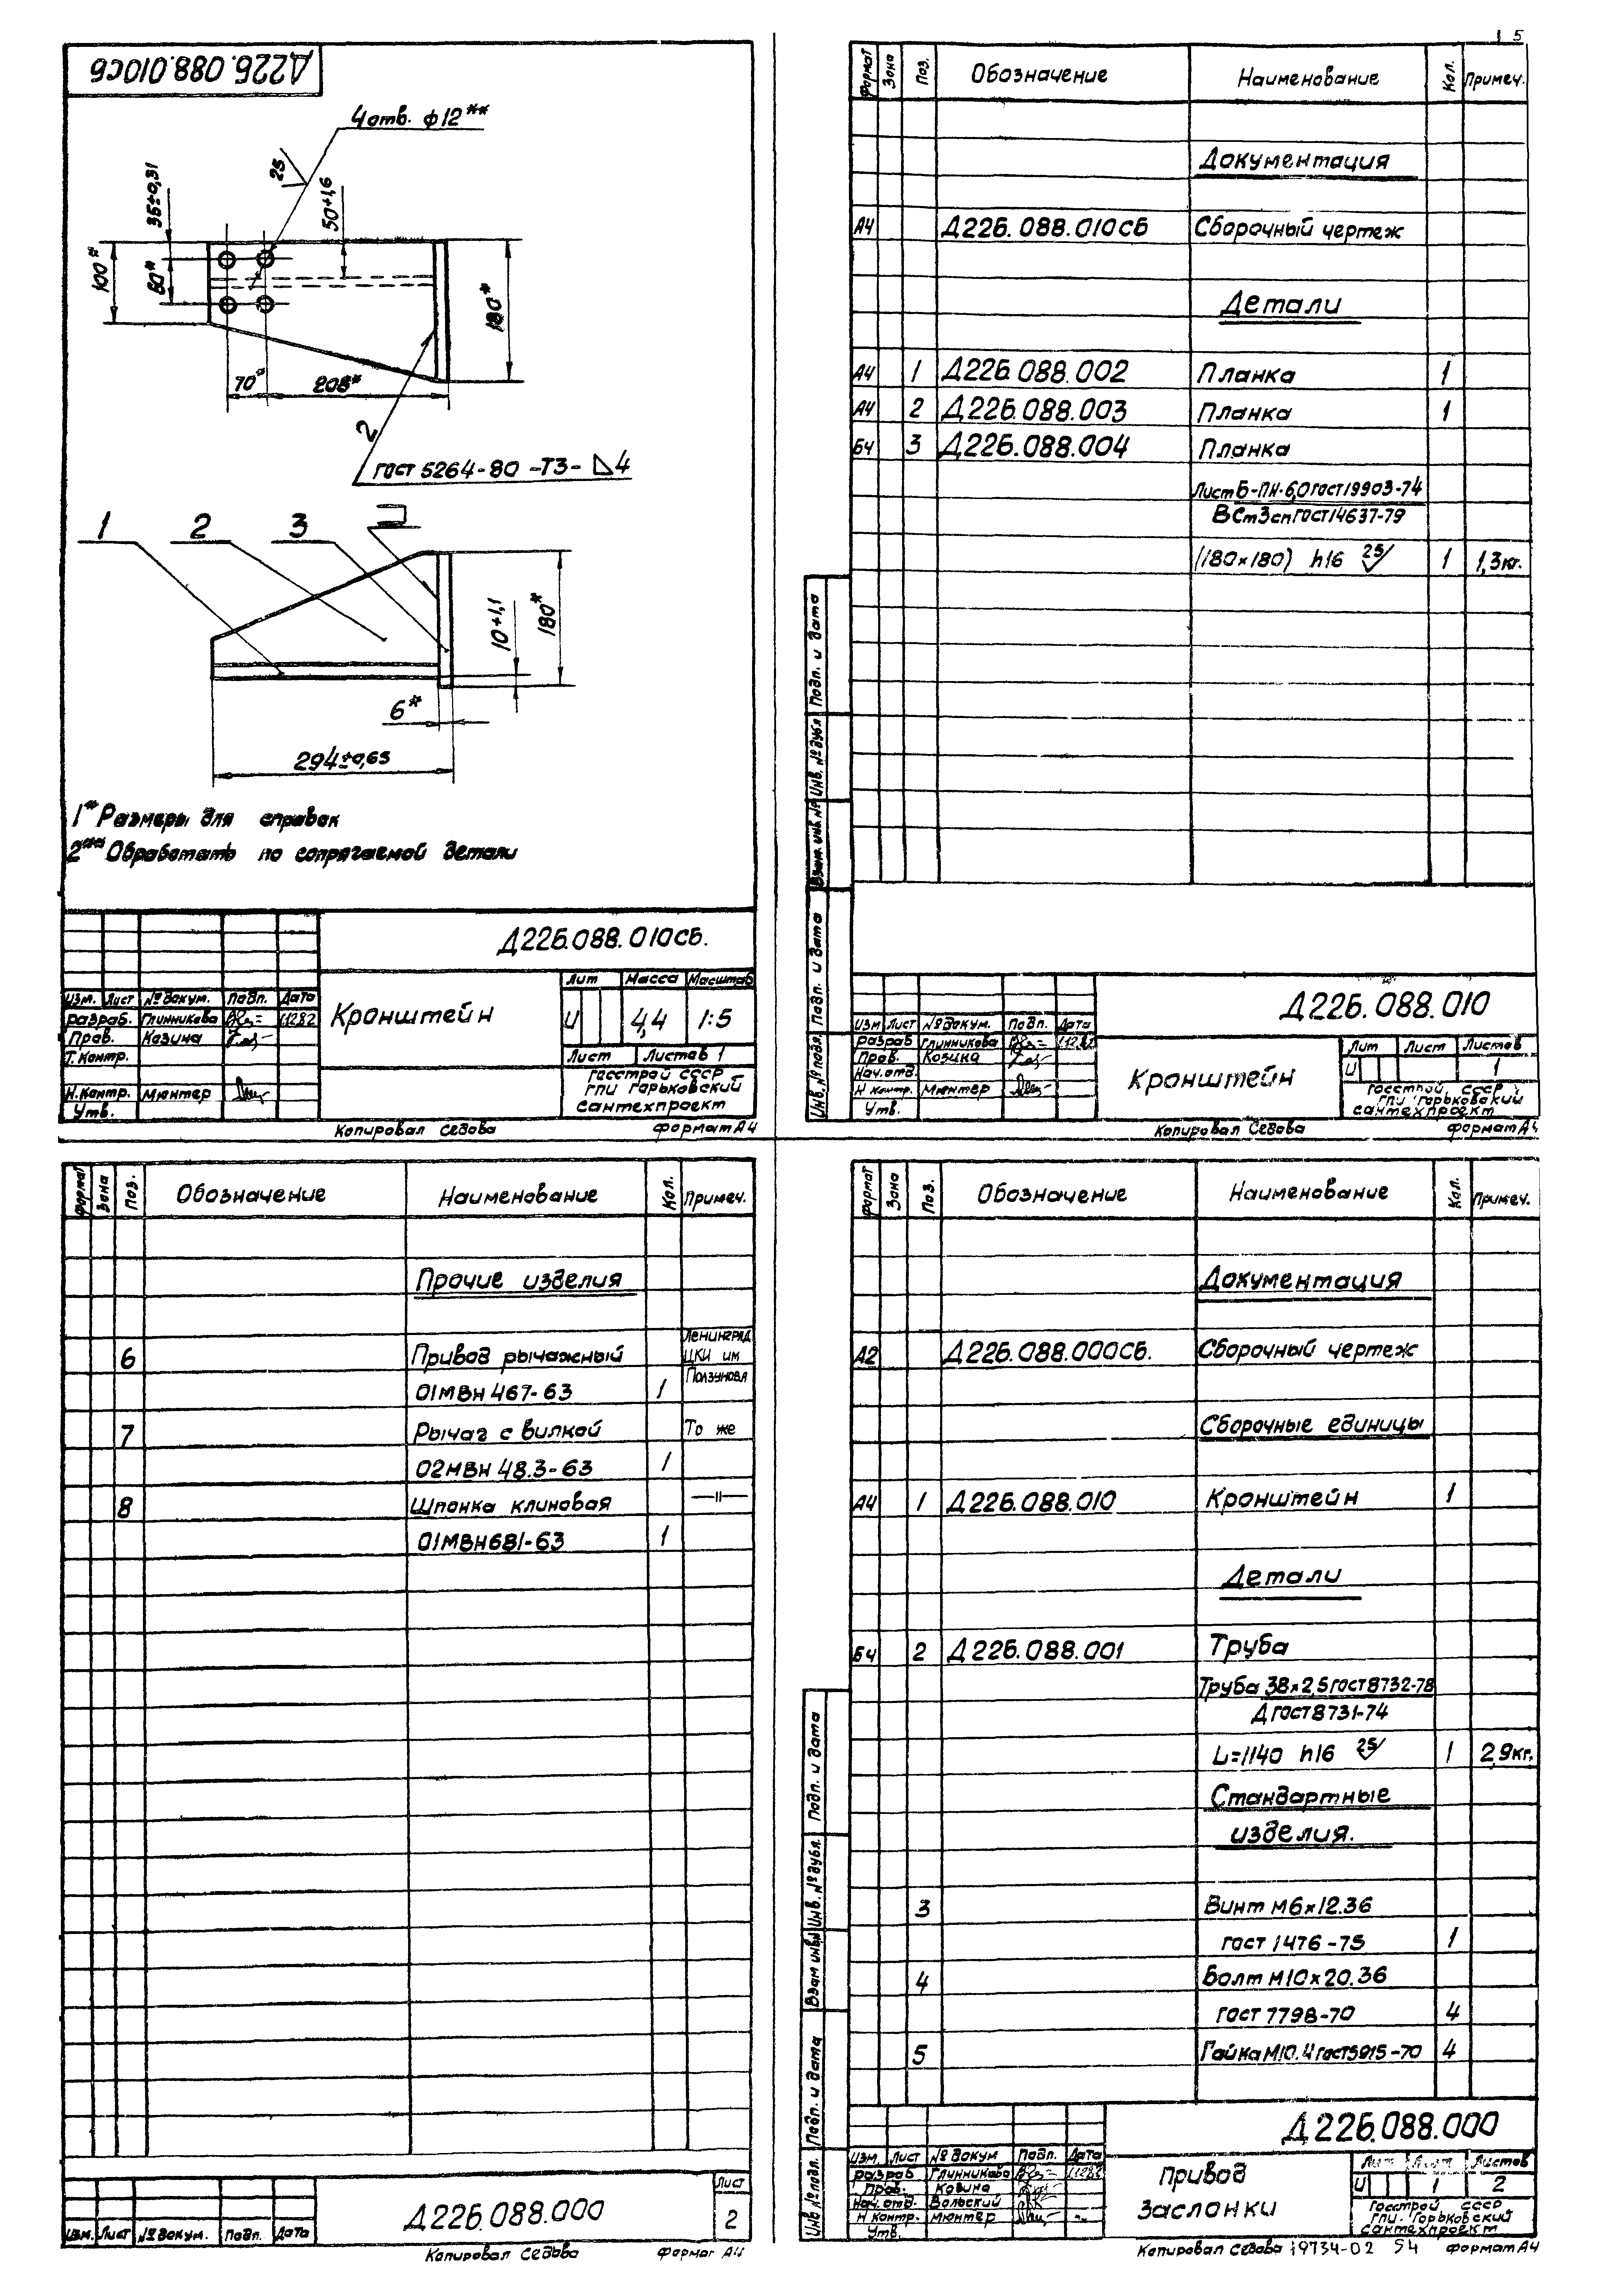 Д22Б.088.010СБ
4 отв. ф12**
25
35±0,31
50+1,6
100*
80*
180*
70*
208*
2
ГОСТ 5264-80 -Т3- ◺4
1 2 3
10+1,1
180*
6*
294±0,65
1* Размеры для справок
2** Обработать по сопрягаемой детали
Д22Б.088.010СБ.
Лит Масса Масштаб
Изм. Лист № докум. Подп. Дата
Кронштейн
И 4,4 1:5
Разраб. Глинникова 1.12.82
Пров. Козина
Т.контр.
Лист Листов 1
Н.контр. Мюнтер
Утв.
Госстрой СССР
ГПИ Горьковский
Сантехпроект
Копировал Седова Формат А4
1 5
Формат Зона Поз. Обозначение Наименование Кол. Примеч.
Документация
А4 Д22Б.088.010СБ Сборочный чертеж
Детали
А4 1 Д22Б.088.002 Планка 1
А4 2 Д22Б.088.003 Планка 1
БЧ 3 Д22Б.088.004 Планка
Лист Б-ПН-6,0 ГОСТ 19903-74
ВСт3сп ГОСТ 14637-79
(180х180) h16 25 1 1,3кг.
Подп. и дата
Инв. № дубл
Взам. инв. №
Подп. и дата
Инв. № подл.
Д22Б.088.010
Изм Лист № докум. Подп. Дата
Разраб Глинникова 1.12.82
Пров. Козина
Нач.отд.
Н контр. Мюнтер
Утв.
Кронштейн
Лит Лист Листов
И 1
Госстрой СССР
ГПИ Горьковский
Сантехпроект
Копировал Седова Формат А4
Формат Зона Поз. Обозначение Наименование Кол. Примеч.
Прочие изделия
6 Привод рычажный
Ленинград
ЦКИ им
Ползунова
01МВН 467-63 1
7 Рычаг с вилкой То же
02МВН 48.3-63 1
8 Шпонка клиновая —"—
01МВН681-63 1
Изм. Лист № докум. Подп. Дата
Д22Б.088.000
Лист
2
Копировал Седова Формат А4
Формат Зона Поз. Обозначение Наименование Кол. Примеч.
Документация
А2 Д22Б.088.000СБ. Сборочный чертеж
Сборочные единицы
А4 1 Д22Б.088.010 Кронштейн 1
Детали
БЧ 2 Д22Б.088.001 Труба
Труба 38х2,5 ГОСТ 8732-78
Д ГОСТ 8731-74
L=1140 h16 25 1 2,9кг.
Стандартные
изделия.
3 Винт М6х12.36
ГОСТ 1476-75 1
4 Болт М10х20.36
ГОСТ 7798-70 4
5 Гайка М10.4 ГОСТ 5915-70 4
Подп. и дата
Инв. № дубл.
Взам инв.№
Подп. и дата
Инв № подл.
Д22Б.088.000
Изм. Лист № докум Подп. Дата
Разраб Глинникова 1.12.82
Пров. Козина
Нач. отд. Вольский
Н контр. Мюнтер
Утв.
Привод
заслонки
Лит Лист Листов
И 1 2
Госстрой СССР
ГПИ. Горьковский
Сантехпроект
Копировал Седова 19734-02 54 Формат А4